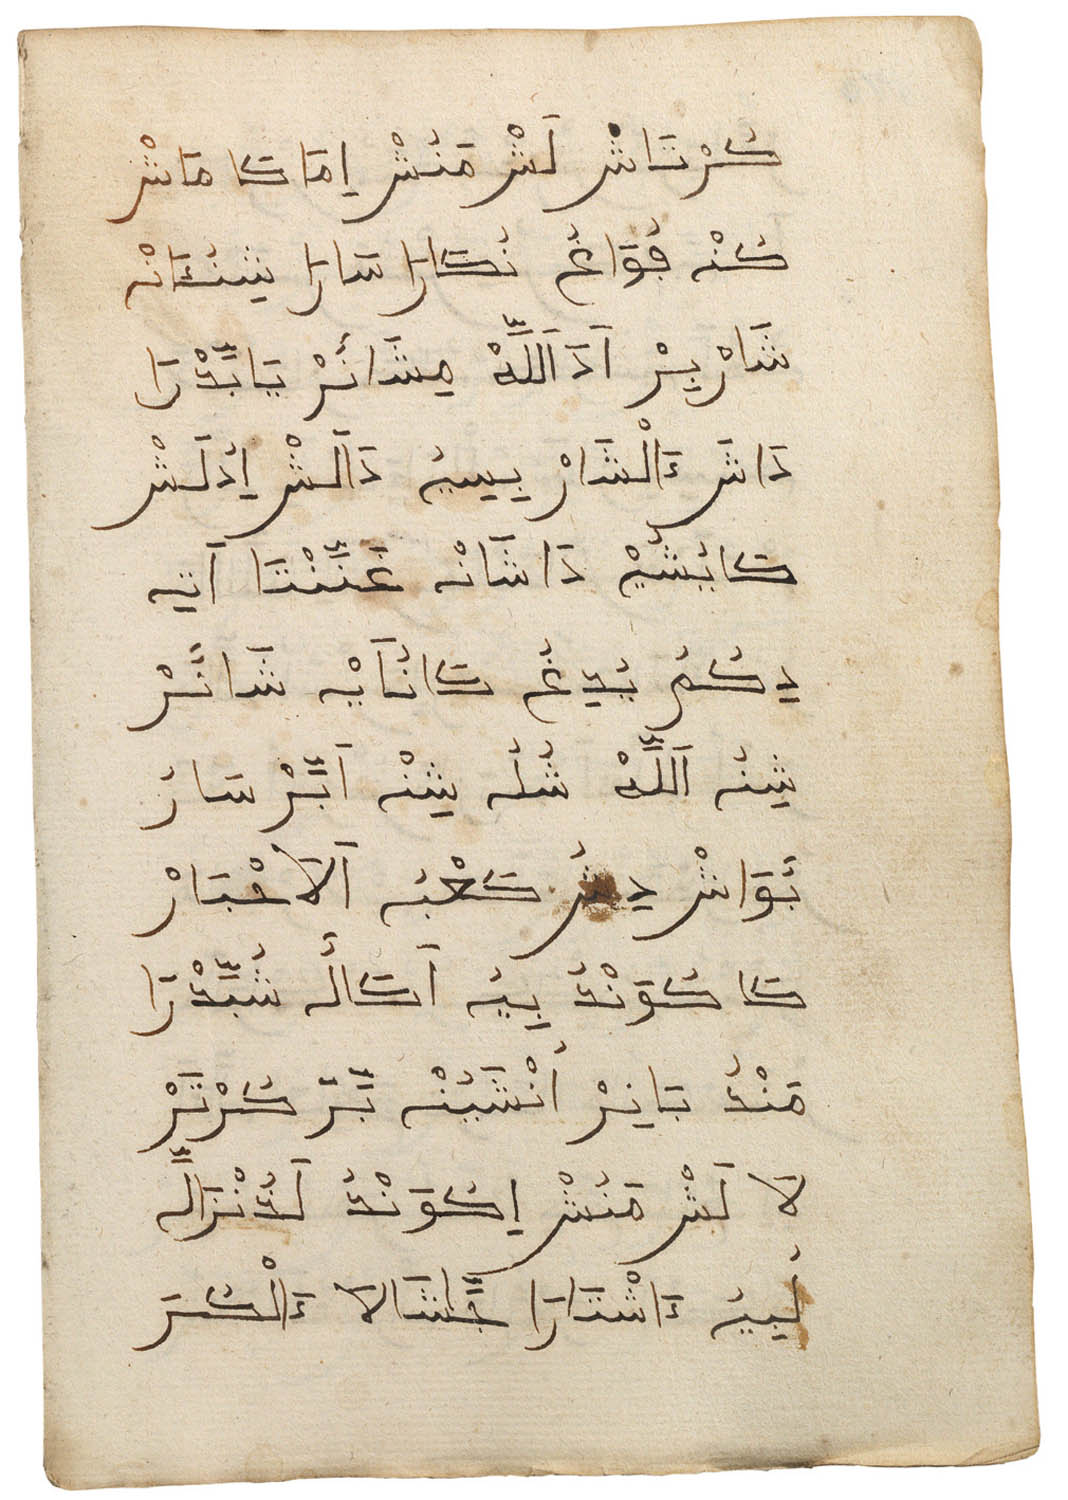 كُرْتَاشْ لَشْ مَنُشْ اِمَا كَا مَاشْ
كُنْ فُوَاغُ نُكَارَا سَارَا شِنُءَانْ
شَارْ بِرْ اَدَ اَللَّهْ مِشَائُرْ بَابَّدْرَا
دَاشَ ءَالْشَارْ بِيسِيُ دَالَشْ اِدُلَشْ
كَابُشُيْ دَاشَانْ غَنَّنْتَا اَتِي
دِكُمُ يُدِغُ كَانُايْ شَانَّرْ
شِنُ اَللَّهْ شُلُ شِنْ اَبَّرْ سَارُ
بُوَاشْ دِشُ كَعْبُ اَلَاحْبَارْ
كَا كُوَنْدُ بِيُ اَكَالُ شُبَّدْرَا
مَنْدُ بَانِرْ اُنْشَبُنْ بَّرَّ كُرْتَرْ
لَا لَشْ مَنُشْ اِكُوَنْدُ لَدُنْزَالَّ
لُبِيُ ءَاشْتَارَا جَّاشَالَا ءَالْكُرَ